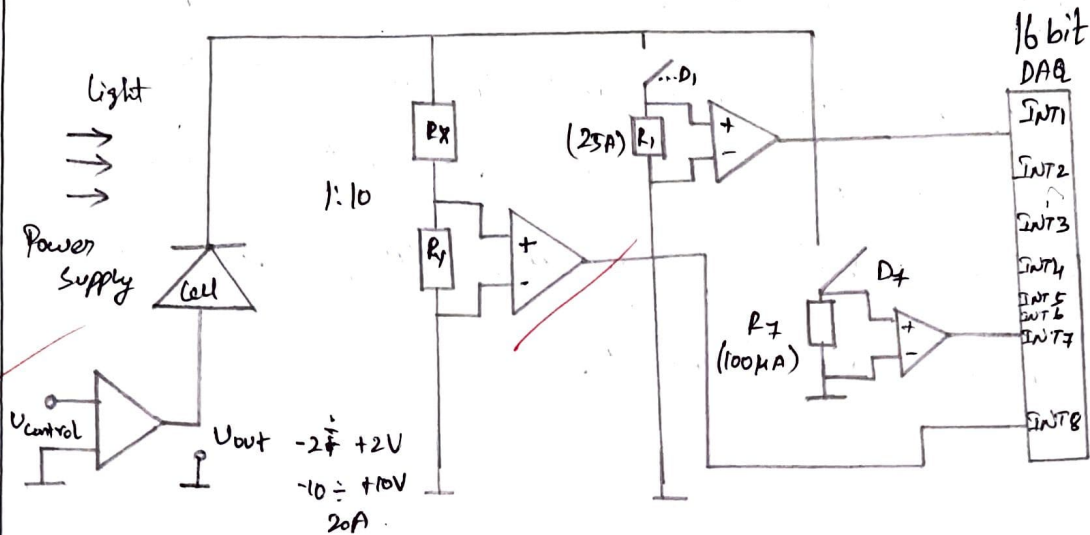 16 bit
DAQ
Light
Power
Supply
Cell
Ucontrol
Uout
-2 ÷ +2V
-10 ÷ +10V
20A
1:10
RX
Ry
+
-
D1
(25A)
R1
+
-
D7
R7
(100μA)
+
-
INT1
INT2
INT3
INT4
INT5
INT6
INT7
INT8